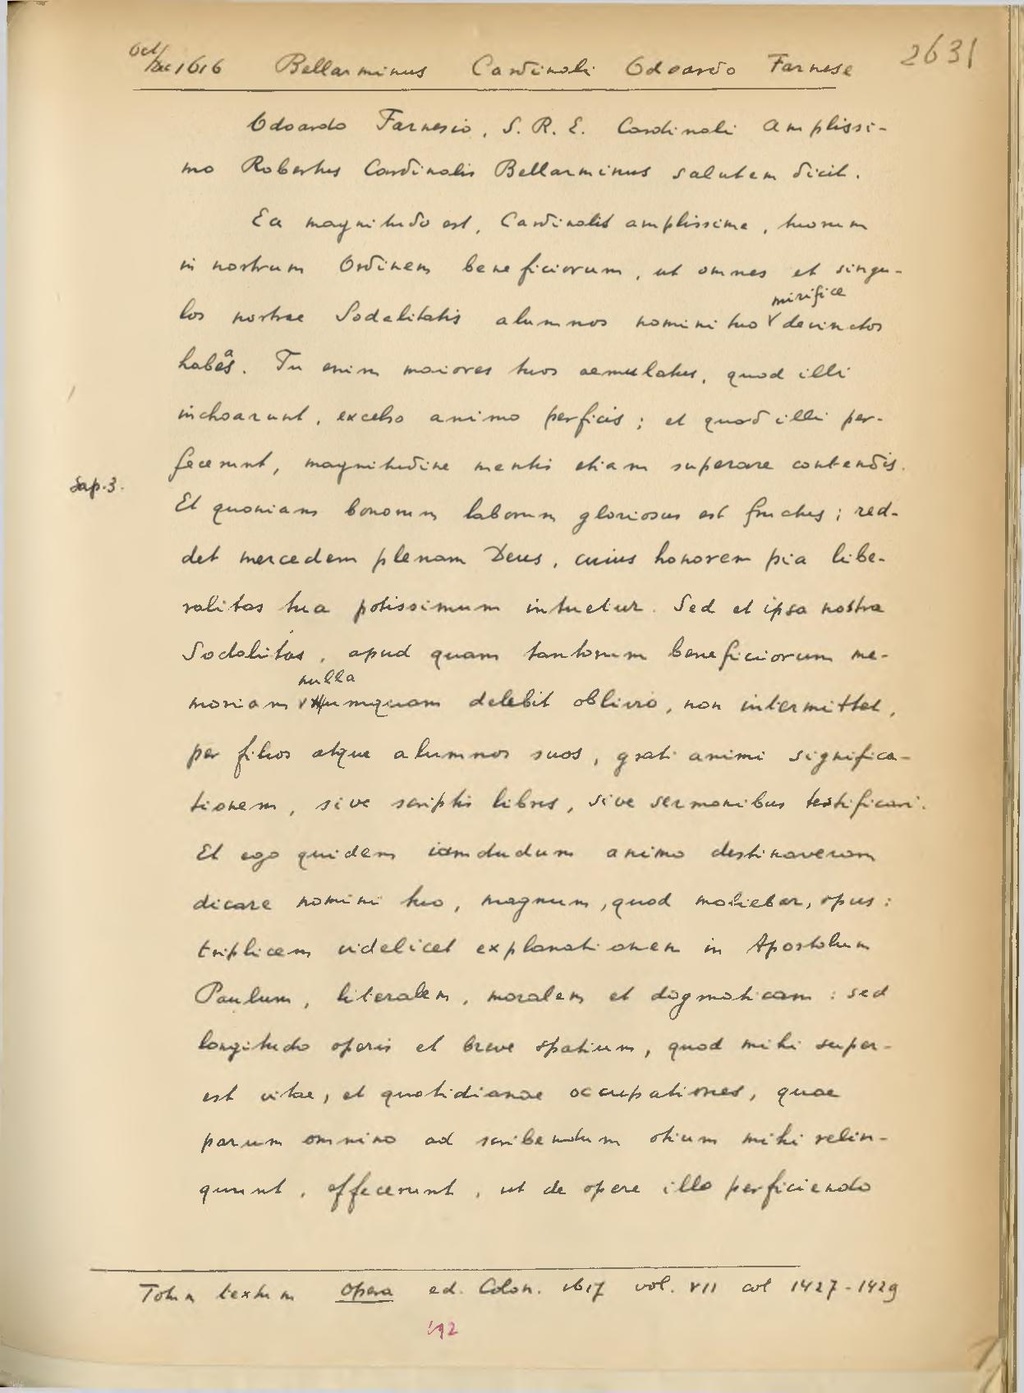 Oct/Dec 1616 Bellarminus Cardinali Odoardo Farnese 2631
Odoardo Farnesio, S. R. E. Cardinali Amplissi-
mo Robertus Cardinalis Bellarminus salutem dicit.
Ea magnitudo est, Cardinalis amplissime, tuorum
in nostrum Ordinem beneficiorum, ut omnes et singu-
los nostrae Sodalitatis alumnos nomini tuo mirifice devinctos
habeas. Tu enim maiores tuos aemulatus, quod illi
inchoarunt, excelso animo perficis; et quod illi per-
fecerunt, magnitudine mentis etiam superare contendis.
Sap. 3. Et quoniam bonorum laborum gloriosus est fructus; red-
det mercedem plenam Deus, cuius honorem pia libe-
ralitas tua potissimum intuetur. Sed et ipsa nostra
Sodalitas, apud quam tantorum beneficiorum me-
moriam nulla umquam delebit oblivio, non intermittet,
per filios atque alumnos suos, grati animi significa-
tionem, sive scriptis libris, sive sermonibus testificari.
Et ego quidem iamdudum animo destinaveram
dicare nomini tuo, magnum, quod moliebar, opus:
triplicem videlicet explanationem in Apostolum
Paulum, literalem, moralem et dogmaticam: sed
longitudo operis et breve spatium, quod mihi super-
est vitae, et quotidianae occupationes, quae
parum omnino ad scribendum otium mihi relin-
quunt, effecerunt, ut de opere illo perficiendo
Totum textum Opera ed. Colon. 1617 vol. VII col 1427-1429
192